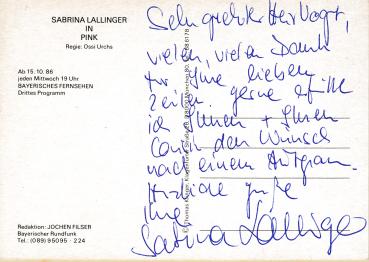 SABRINA LALLINGER
IN
PINK
Regie: Ossi Urchs
Ab 15. 10. 86
jeden Mittwoch 19 Uhr
BAYERISCHES FERNSEHEN
Drittes Programm
Redaktion: JOCHEN FILSER
Bayerischer Rundfunk
Tel.: (089) 95095 - 224
Sehr geehrter Herr Vogt,
vielen, vielen Dank
für Ihre lieben
Zeilen. gerne erfülle
ich Ihnen + Ihren
den Wunsch
nach einem Autogramm.
Herzliche Grüße
Ihre
Sabrina Lallinger